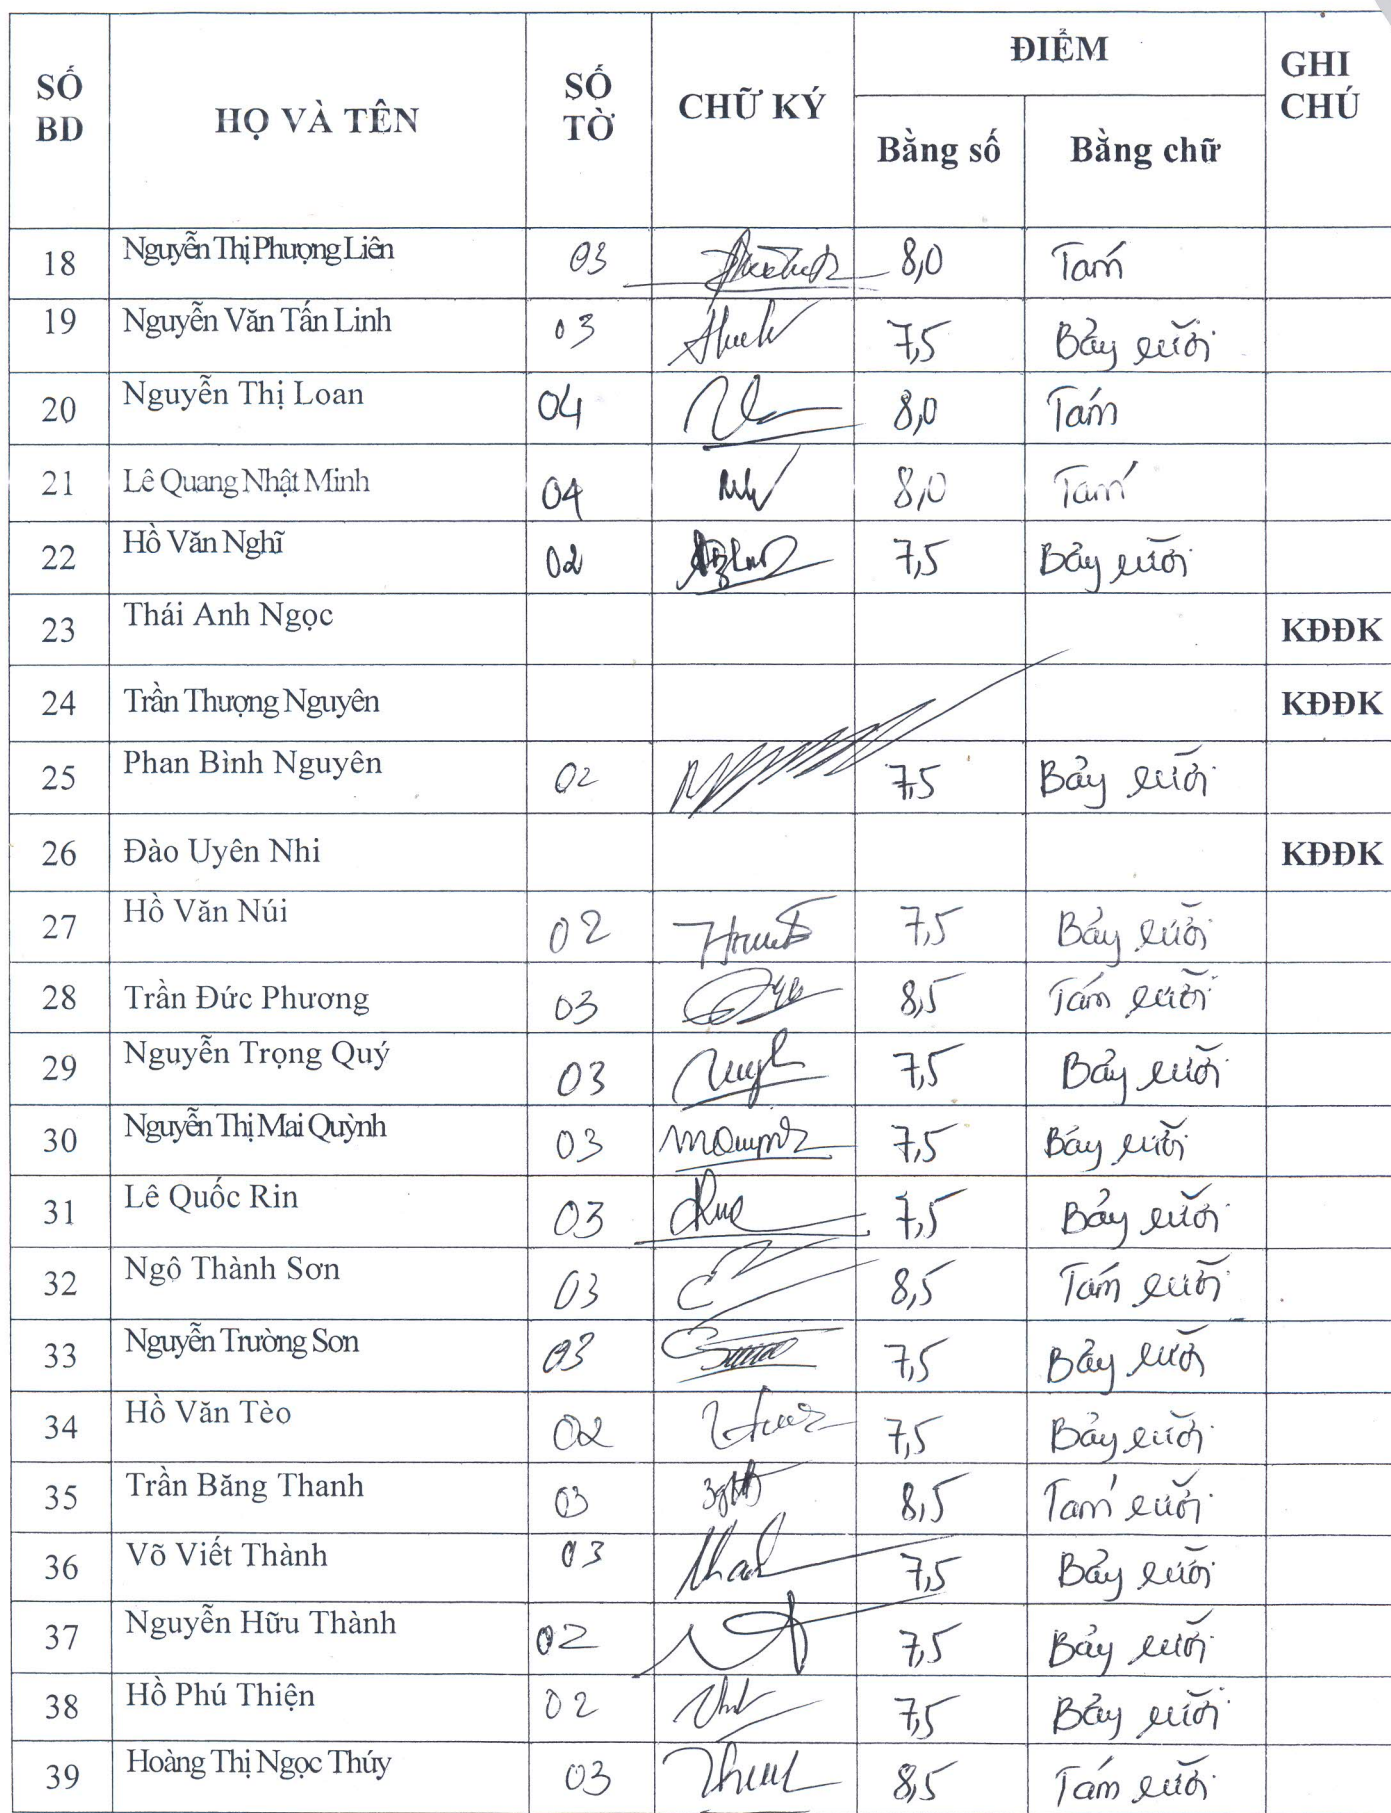 SỐ BD HỌ VÀ TÊN SỐ TỜ CHỮ KÝ ĐIỂM GHI CHÚ
Bằng số Bằng chữ
18 Nguyễn Thị Phượng Liên 03 8,0 Tám
19 Nguyễn Văn Tấn Linh 03 7,5 Bảy rưỡi
20 Nguyễn Thị Loan 04 8,0 Tám
21 Lê Quang Nhật Minh 04 8,0 Tám
22 Hồ Văn Nghĩ 02 7,5 Bảy rưỡi
23 Thái Anh Ngọc KĐĐK
24 Trần Thượng Nguyên KĐĐK
25 Phan Bình Nguyên 02 7,5 Bảy rưỡi
26 Đào Uyên Nhi KĐĐK
27 Hồ Văn Núi 02 7,5 Bảy rưỡi
28 Trần Đức Phương 03 8,5 Tám rưỡi
29 Nguyễn Trọng Quý 03 7,5 Bảy rưỡi
30 Nguyễn Thị Mai Quỳnh 03 7,5 Bảy rưỡi
31 Lê Quốc Rin 03 7,5 Bảy rưỡi
32 Ngô Thành Sơn 03 8,5 Tám rưỡi
33 Nguyễn Trường Sơn 03 7,5 Bảy rưỡi
34 Hồ Văn Tèo 02 7,5 Bảy rưỡi
35 Trần Băng Thanh 03 8,5 Tám rưỡi
36 Võ Viết Thành 03 7,5 Bảy rưỡi
37 Nguyễn Hữu Thành 02 7,5 Bảy rưỡi
38 Hồ Phú Thiện 02 7,5 Bảy rưỡi
39 Hoàng Thị Ngọc Thúy 03 8,5 Tám rưỡi